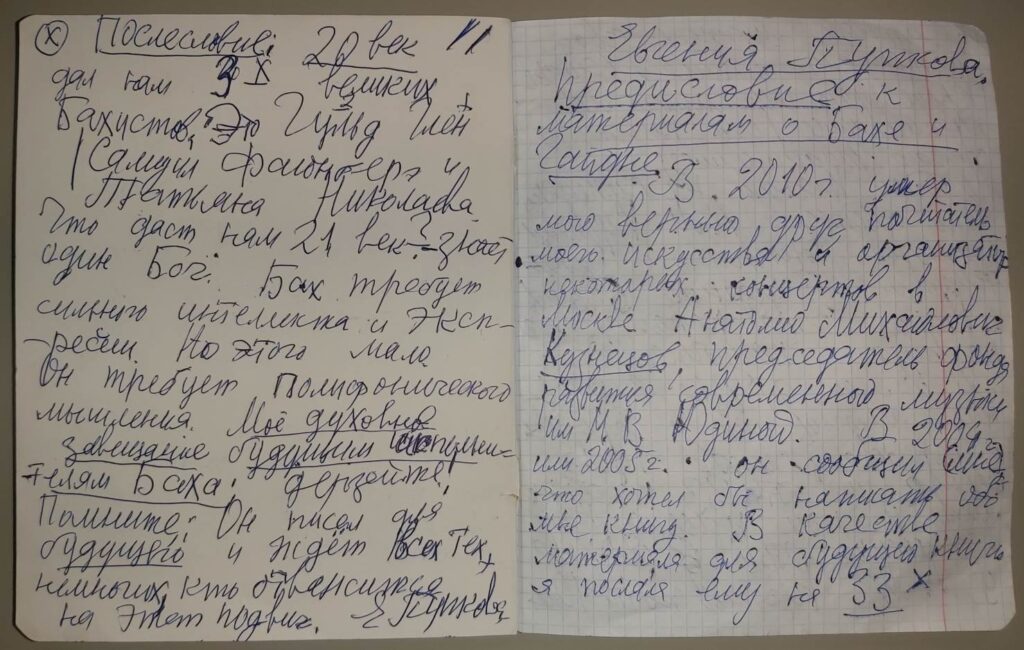 Х Послесловие: 20 век
дал нам 3х великих
Бахистов. Это Гульд Глен
Самуил Файнберг и
Татьяна Николаева.
Что даст нам 21 век? – знает
один Бог. Бах требует
сильного интелекта и Эксп-
-рессии. Но этого мало.
Он требует Полифонического
мышления. Моё духовное
завещание будущим исполни-
телям Баха: дерзайте!
Помните: Он писал для
будущего и ждёт всех тех,
немногих, кто отважится
на этот подвиг. Е Пупкова
Евгения Пупкова.
Предисловие к
материалам о Бахе и
Гайдне В 2010 г. умер
мой верный друг, почитатель
моего искусства и организатор
некоторых концертов в
Москве Анатолий Михайлович
Кузнецов, председатель фонда
развития современной музыки
им М. В Юдиной. В 2004
или 2005 г. он сообщил мне,
что хотел бы написать обо
мне книгу. В качестве
материала для будущей книги
я послала ему на 33х